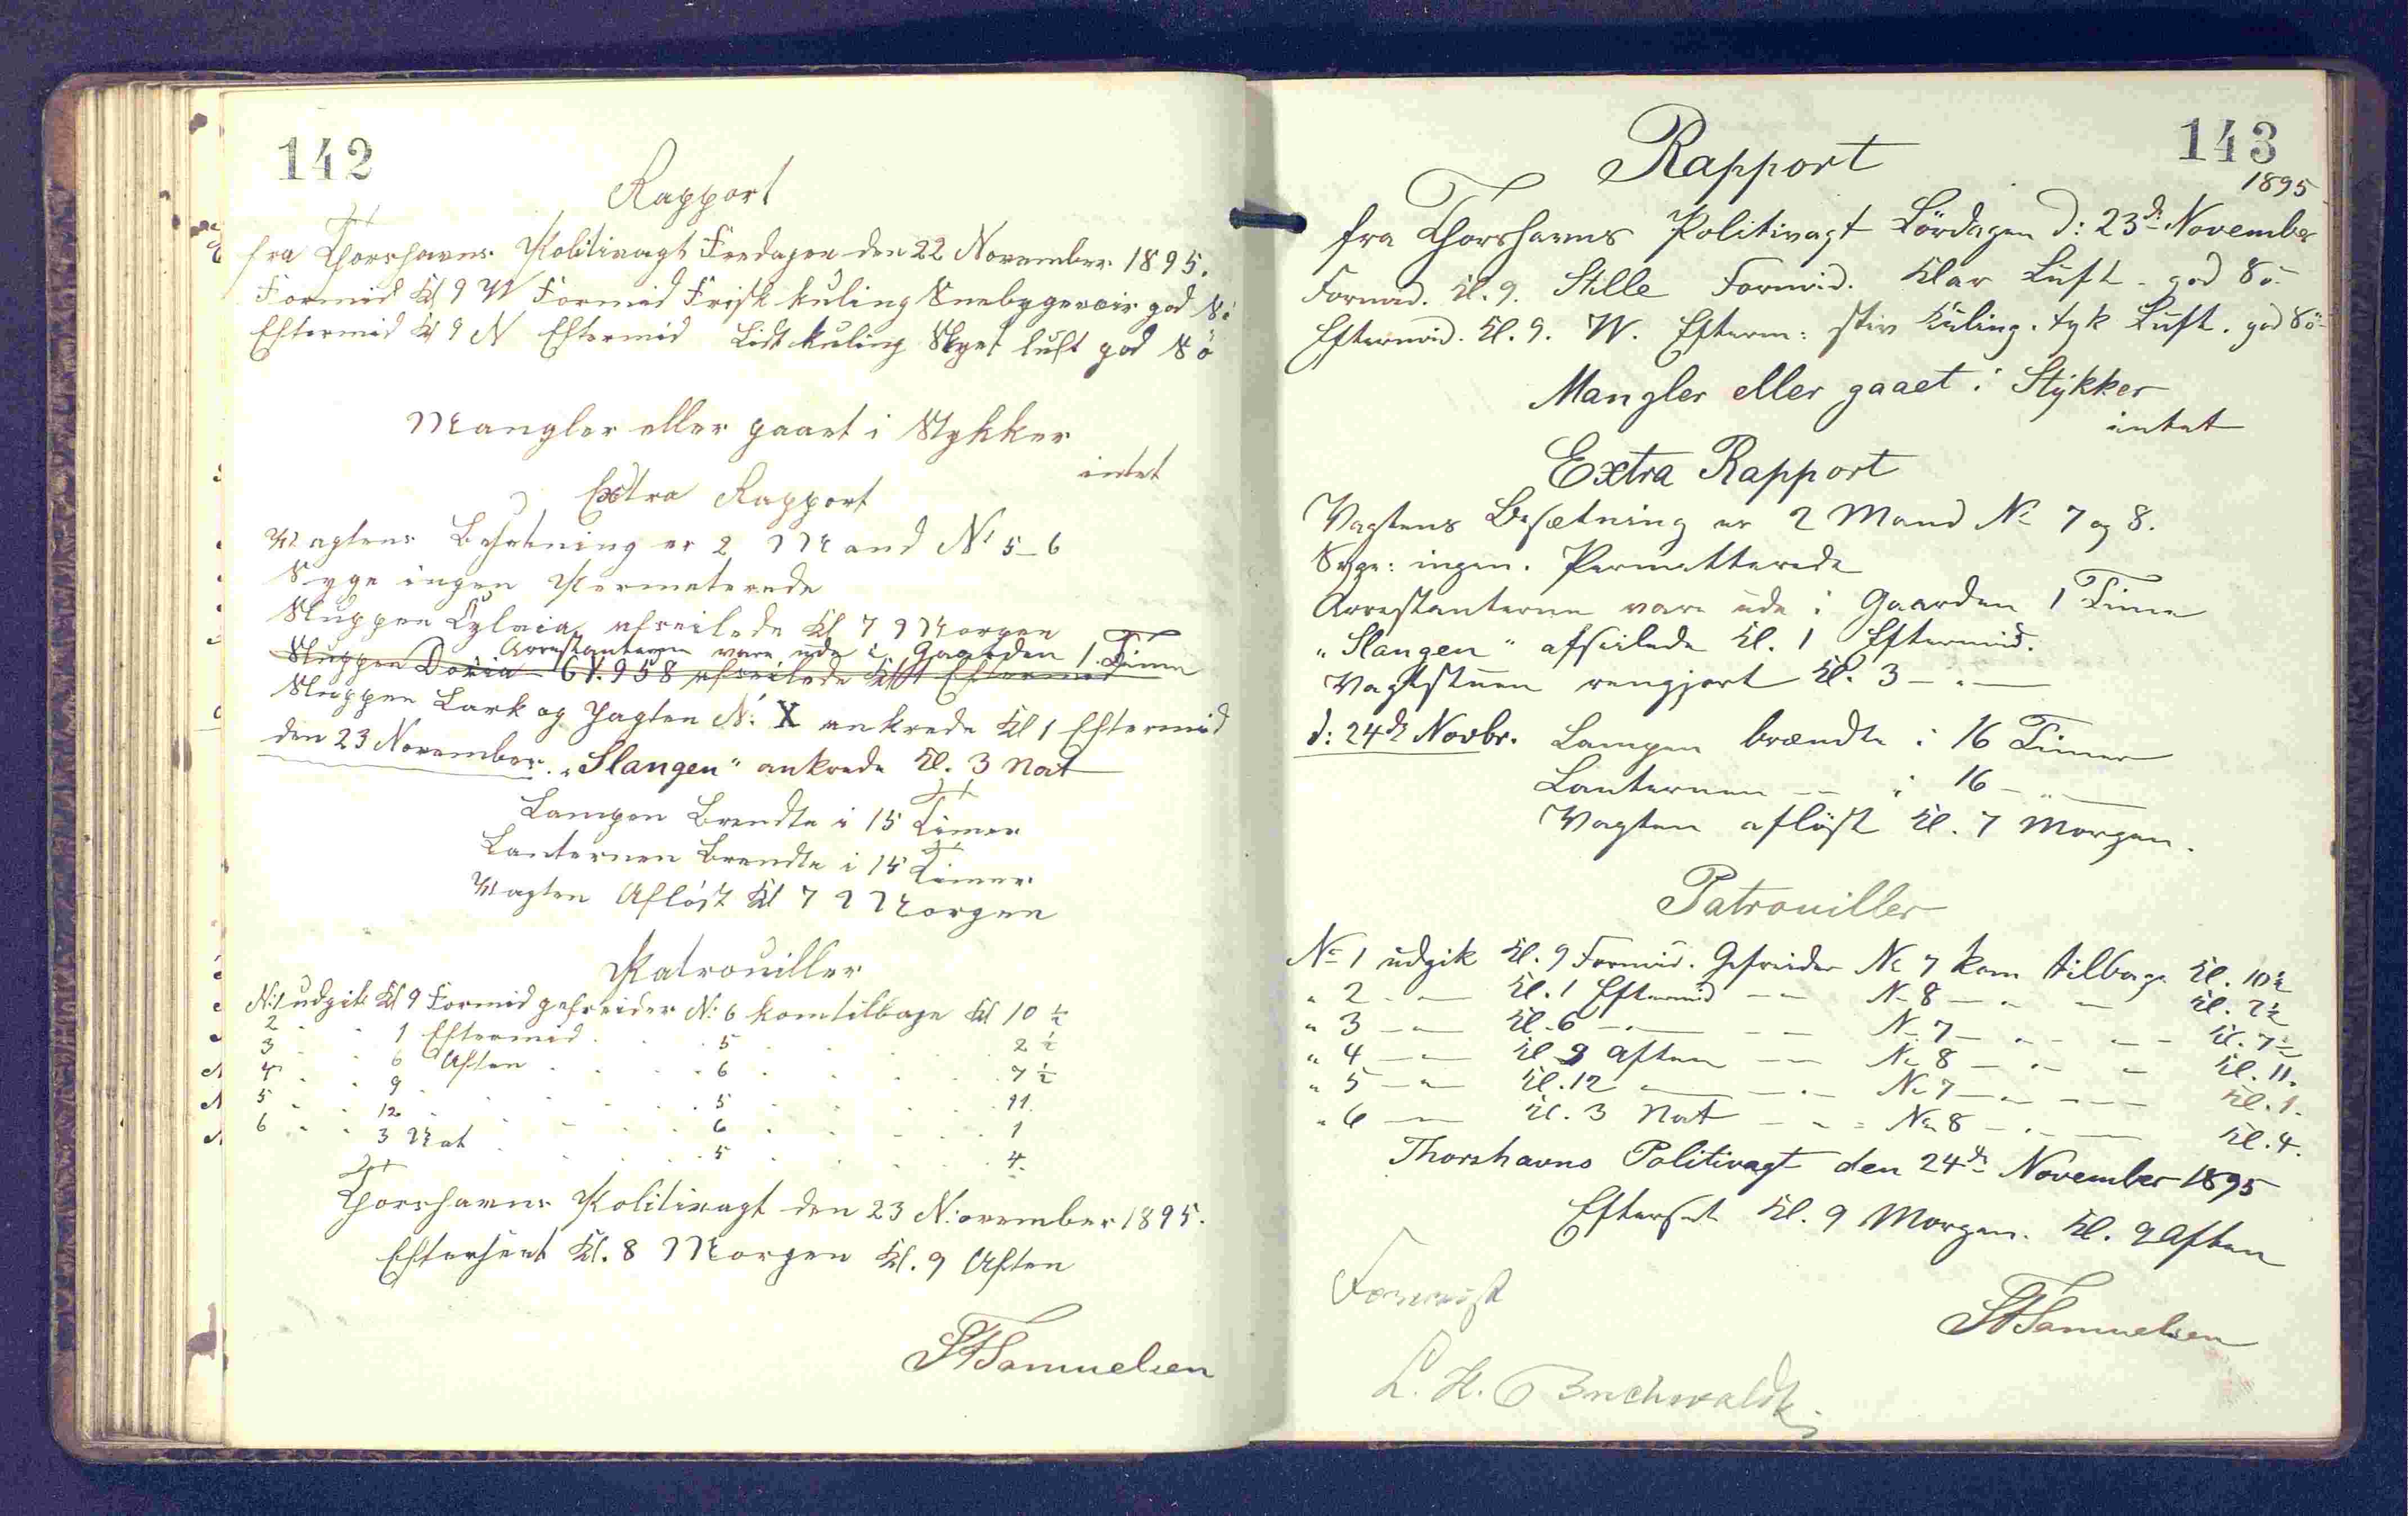 142
Rapport
fra Thorshavns Politivagt Fredagen den 22 November 1895.
Formid Kl 9 W Formid Frisk kuling Snebygeveir god Sö
Eftermid Kl 9 N Eftermid Lidt kuling Skyet luft god Sö
Mangler eller gaaet i Stykker
intet
Extra Rapport
Vagtens Besetning er 2 Mand No 5-6
Syge ingen Permeterede
Sluppen Sylvia afseilede Kl 7 Morgen
Arrestanterne vare ude i Gaarden 1. Time
Sluppen Doria 61.958 afseilede Kl Eftermid
Sluppen Lark og Jagten N: X ankrede Kl 1 Eftermid
den 23 November. "Slangen" ankrede Kl. 3 Nat
Lampen Brendte i 15 Timer
Lanternen Brendte i 15 Timer
Vagten Aflöst Kl 7 Morgen
Patrouiller
N:1 udgik Kl 9 Formid gefreider N: 6 kom tilbage Kl 10 ½
2 " " 1 Eftermid . . . 5 . . . . 2 ½
3 " " 6 Aften . . . 6 . . . . 7 ½
4 . . 9 . . . . 5 . . . . 11.
5 . . 12 . . . . 6 . . . . 1
6 . . 3 Nat . . . 5 . . . . 4.
Thorshavns Politivagt den 23 N:ovember 1895.
Efterseet Kl. 8 Morgen Kl. 9 Aften
Samuelsen
143
Rapport
1895
fra Thorshavns Politivagt Lördagen d: 23de November
Formd. Kl. 9. Stille Formid. Klar Luft. god Sö.
Eftermid. Kl. 9. W. Efterm: stiv Kuling. tyk Luft. god Sö
Mangler eller gaaet i Stykker
intet
Extra Rapport
Vagtens Besætning er 2 Mand No 7 og 8.
Syge: ingen. Permetterede
Arrestanterne vare ude i Gaarden 1 Time
"Slangen" afseilede Kl. 1 Eftermid.
Vagtstuen rengjort Kl. 3 — " —
d: 24de Novbr. Lampen brændte i 16 Timer
Lanternen — — i 16 — " —
Vagten aflöst Kl. 7 Morgen.
Patrouiller
No 1 udgik Kl. 9 Formid. Gefreider No 7 kom tilbage Kl. 10½
" 2 - — Kl. 1 Eftermid — — No 8 — " — Kl. 2½
" 3 — — Kl. 6 — " — — — No 7 — " — — Kl. 7½
" 4 — — Kl 9 Aften — — No 8 — " — Kl. 11.
" 5 — — Kl. 12 — — " — No 7 — " — — Kl. 1.
" 6 — — Kl. 3 Nat — — No 8 — " — Kl. 4.
Thorshavns Politivagt den 24de November 1895
Efterset Kl. 9 Morgen. Kl. 9 Aften
Forevist
Samuelsen
L. H. Buchwaldt